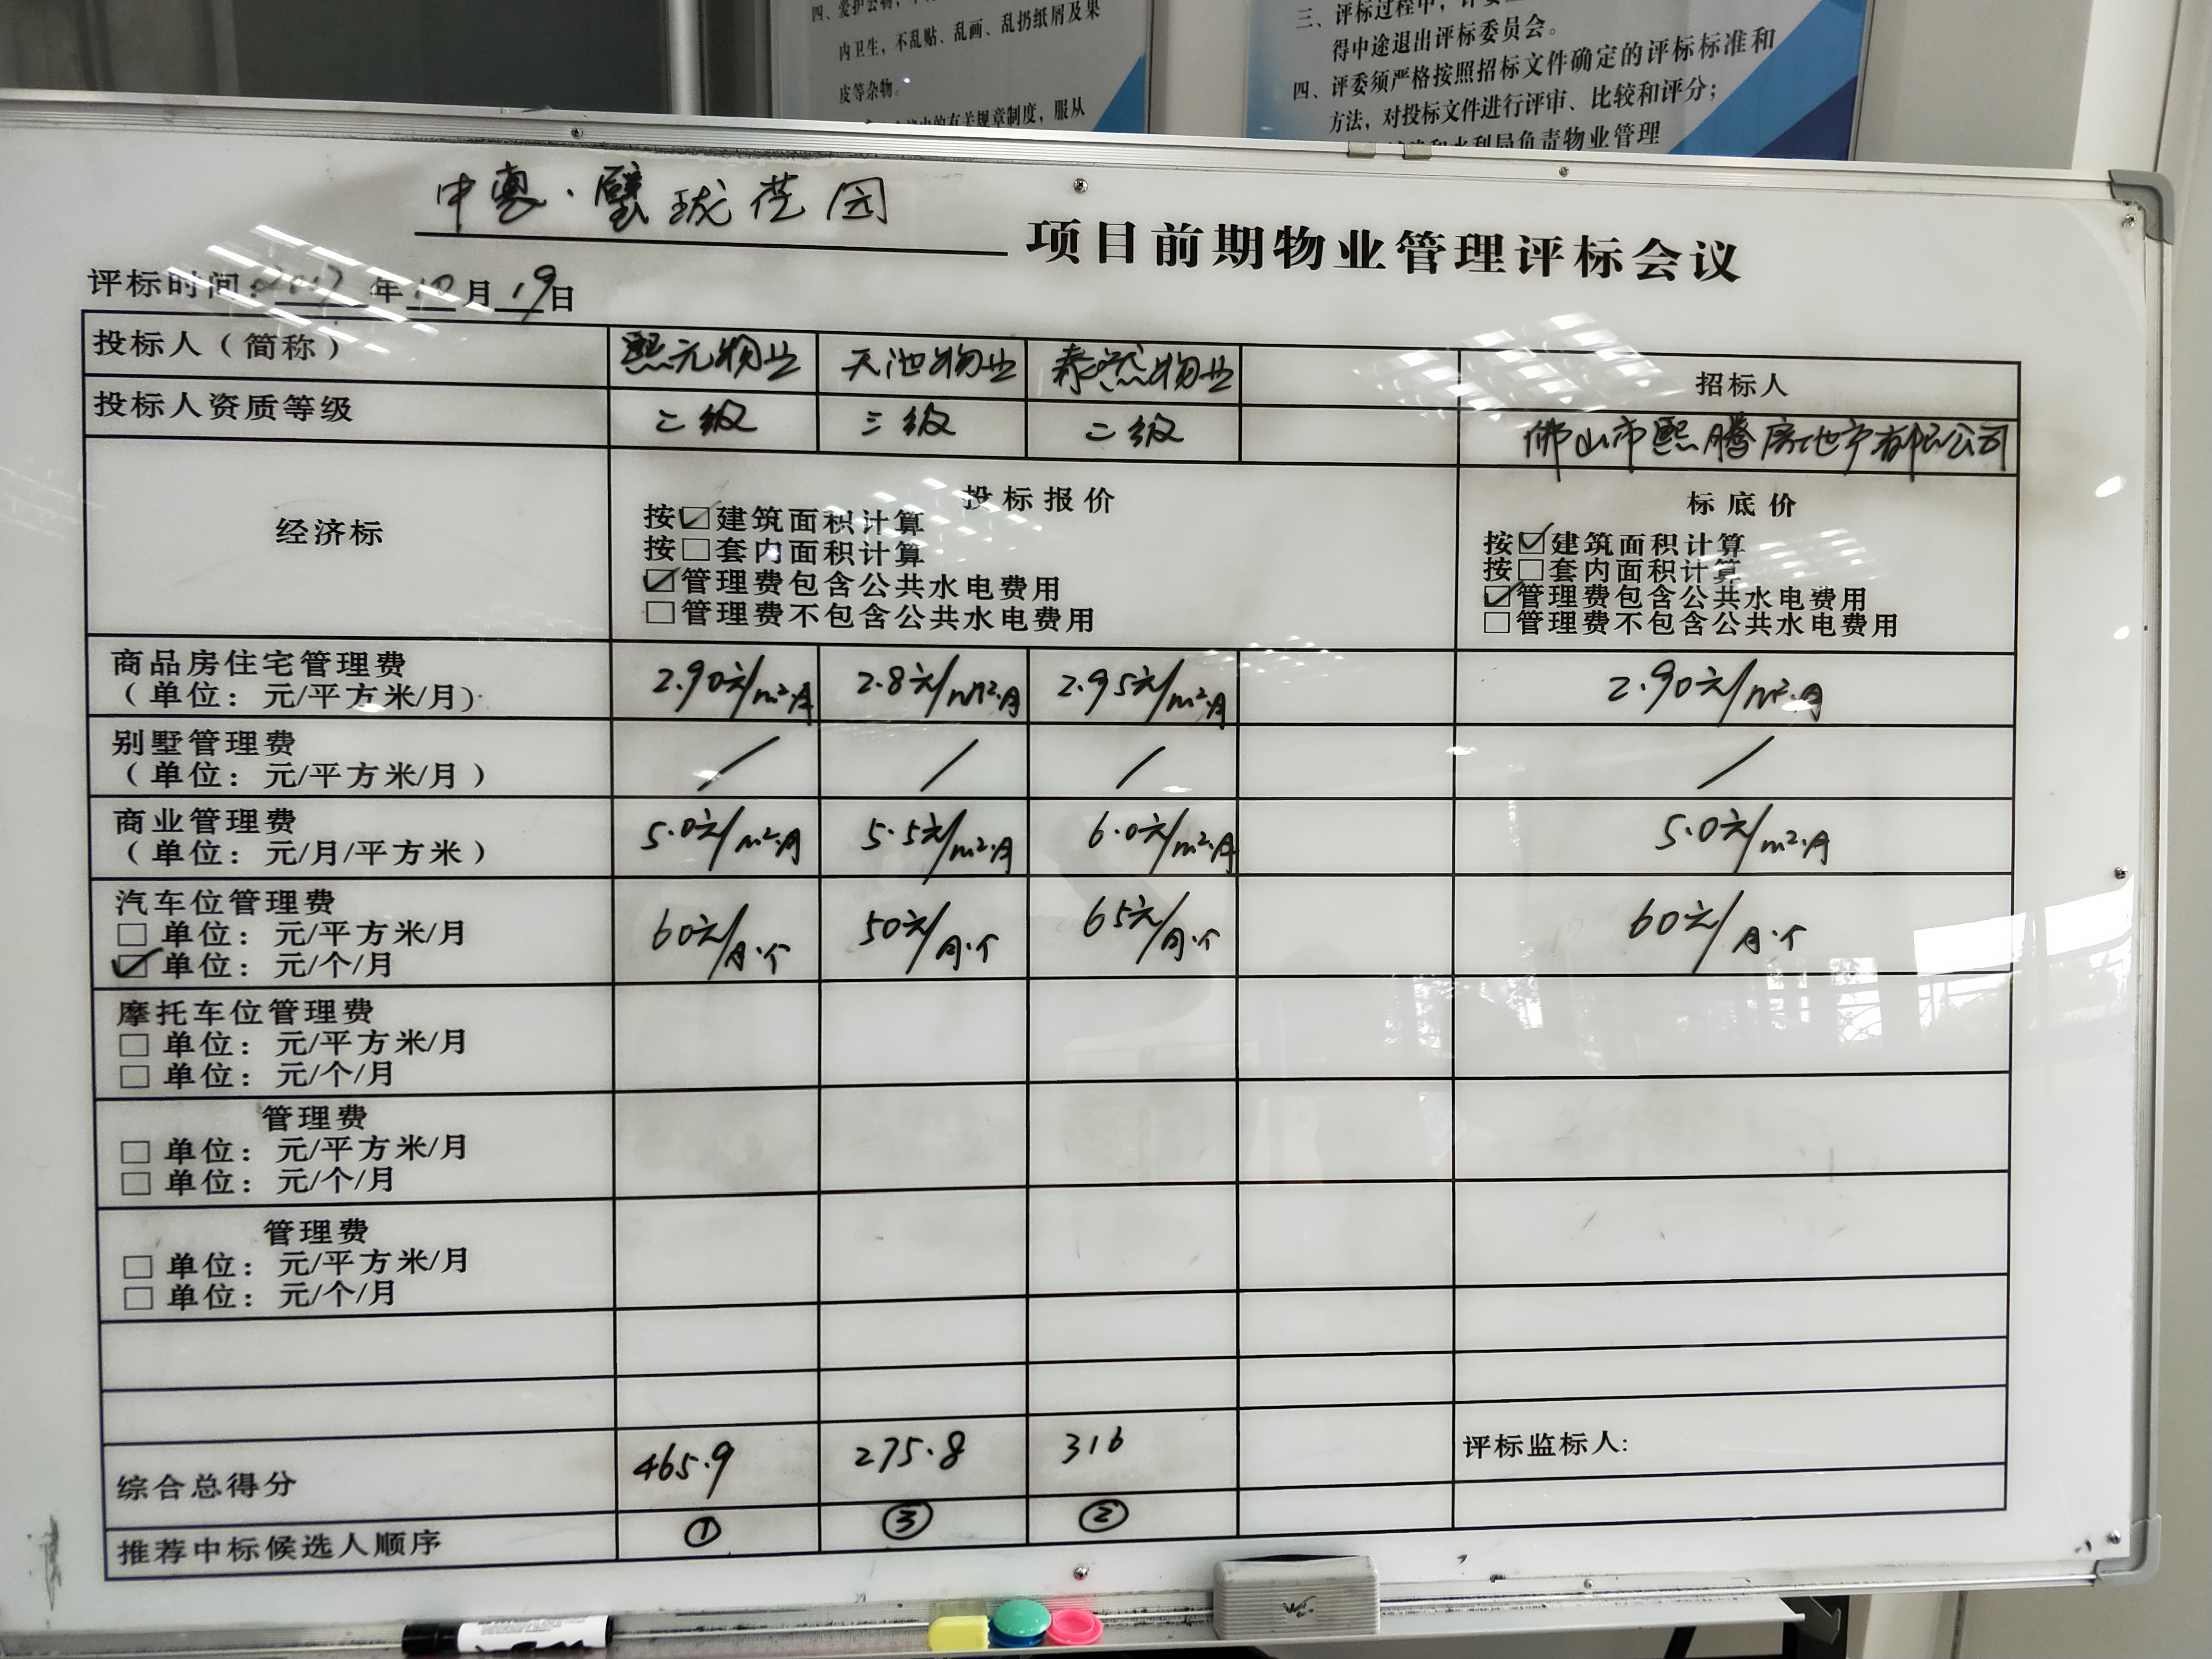 内卫生，不乱贴、乱画、乱扔纸屑及果
皮等杂物。
有关规章制度，服从
三、评标过程中，评委
得中途退出评标委员会。
四、评委须严格按照招标文件确定的评标标准和
方法，对投标文件进行评审、比较和评分；
和水利局负责物业管理
中奥·珑花园 项目前期物业管理评标会议
评标时间：2017年10月19日
投标人（简称） 熙元物业 天池物业 泰然物业 招标人
投标人资质等级 二级 三级 二级 佛山市熙腾房地产有限公司
经济标
投标报价
按☑建筑面积计算
按□套内面积计算
☑管理费包含公共水电费用
□管理费不包含公共水电费用
标底价
按☑建筑面积计算
按□套内面积计算
☑管理费包含公共水电费用
□管理费不包含公共水电费用
商品房住宅管理费
（单位：元/平方米/月） 2.90元/m²·月 2.8元/m²·月 2.95元/m²·月 2.90元/m²·月
别墅管理费
（单位：元/平方米/月） / / / /
商业管理费
（单位：元/月/平方米） 5.0元/m²·月 5.5元/m²·月 6.0元/m²·月 5.0元/m²·月
汽车位管理费
□单位：元/平方米/月
☑单位：元/个/月 60元/月·个 50元/月·个 65元/月·个 60元/月·个
摩托车位管理费
□单位：元/平方米/月
□单位：元/个/月
管理费
□单位：元/平方米/月
□单位：元/个/月
管理费
□单位：元/平方米/月
□单位：元/个/月
综合总得分 465.9 275.8 316 评标监标人:
推荐中标候选人顺序 ① ③ ②